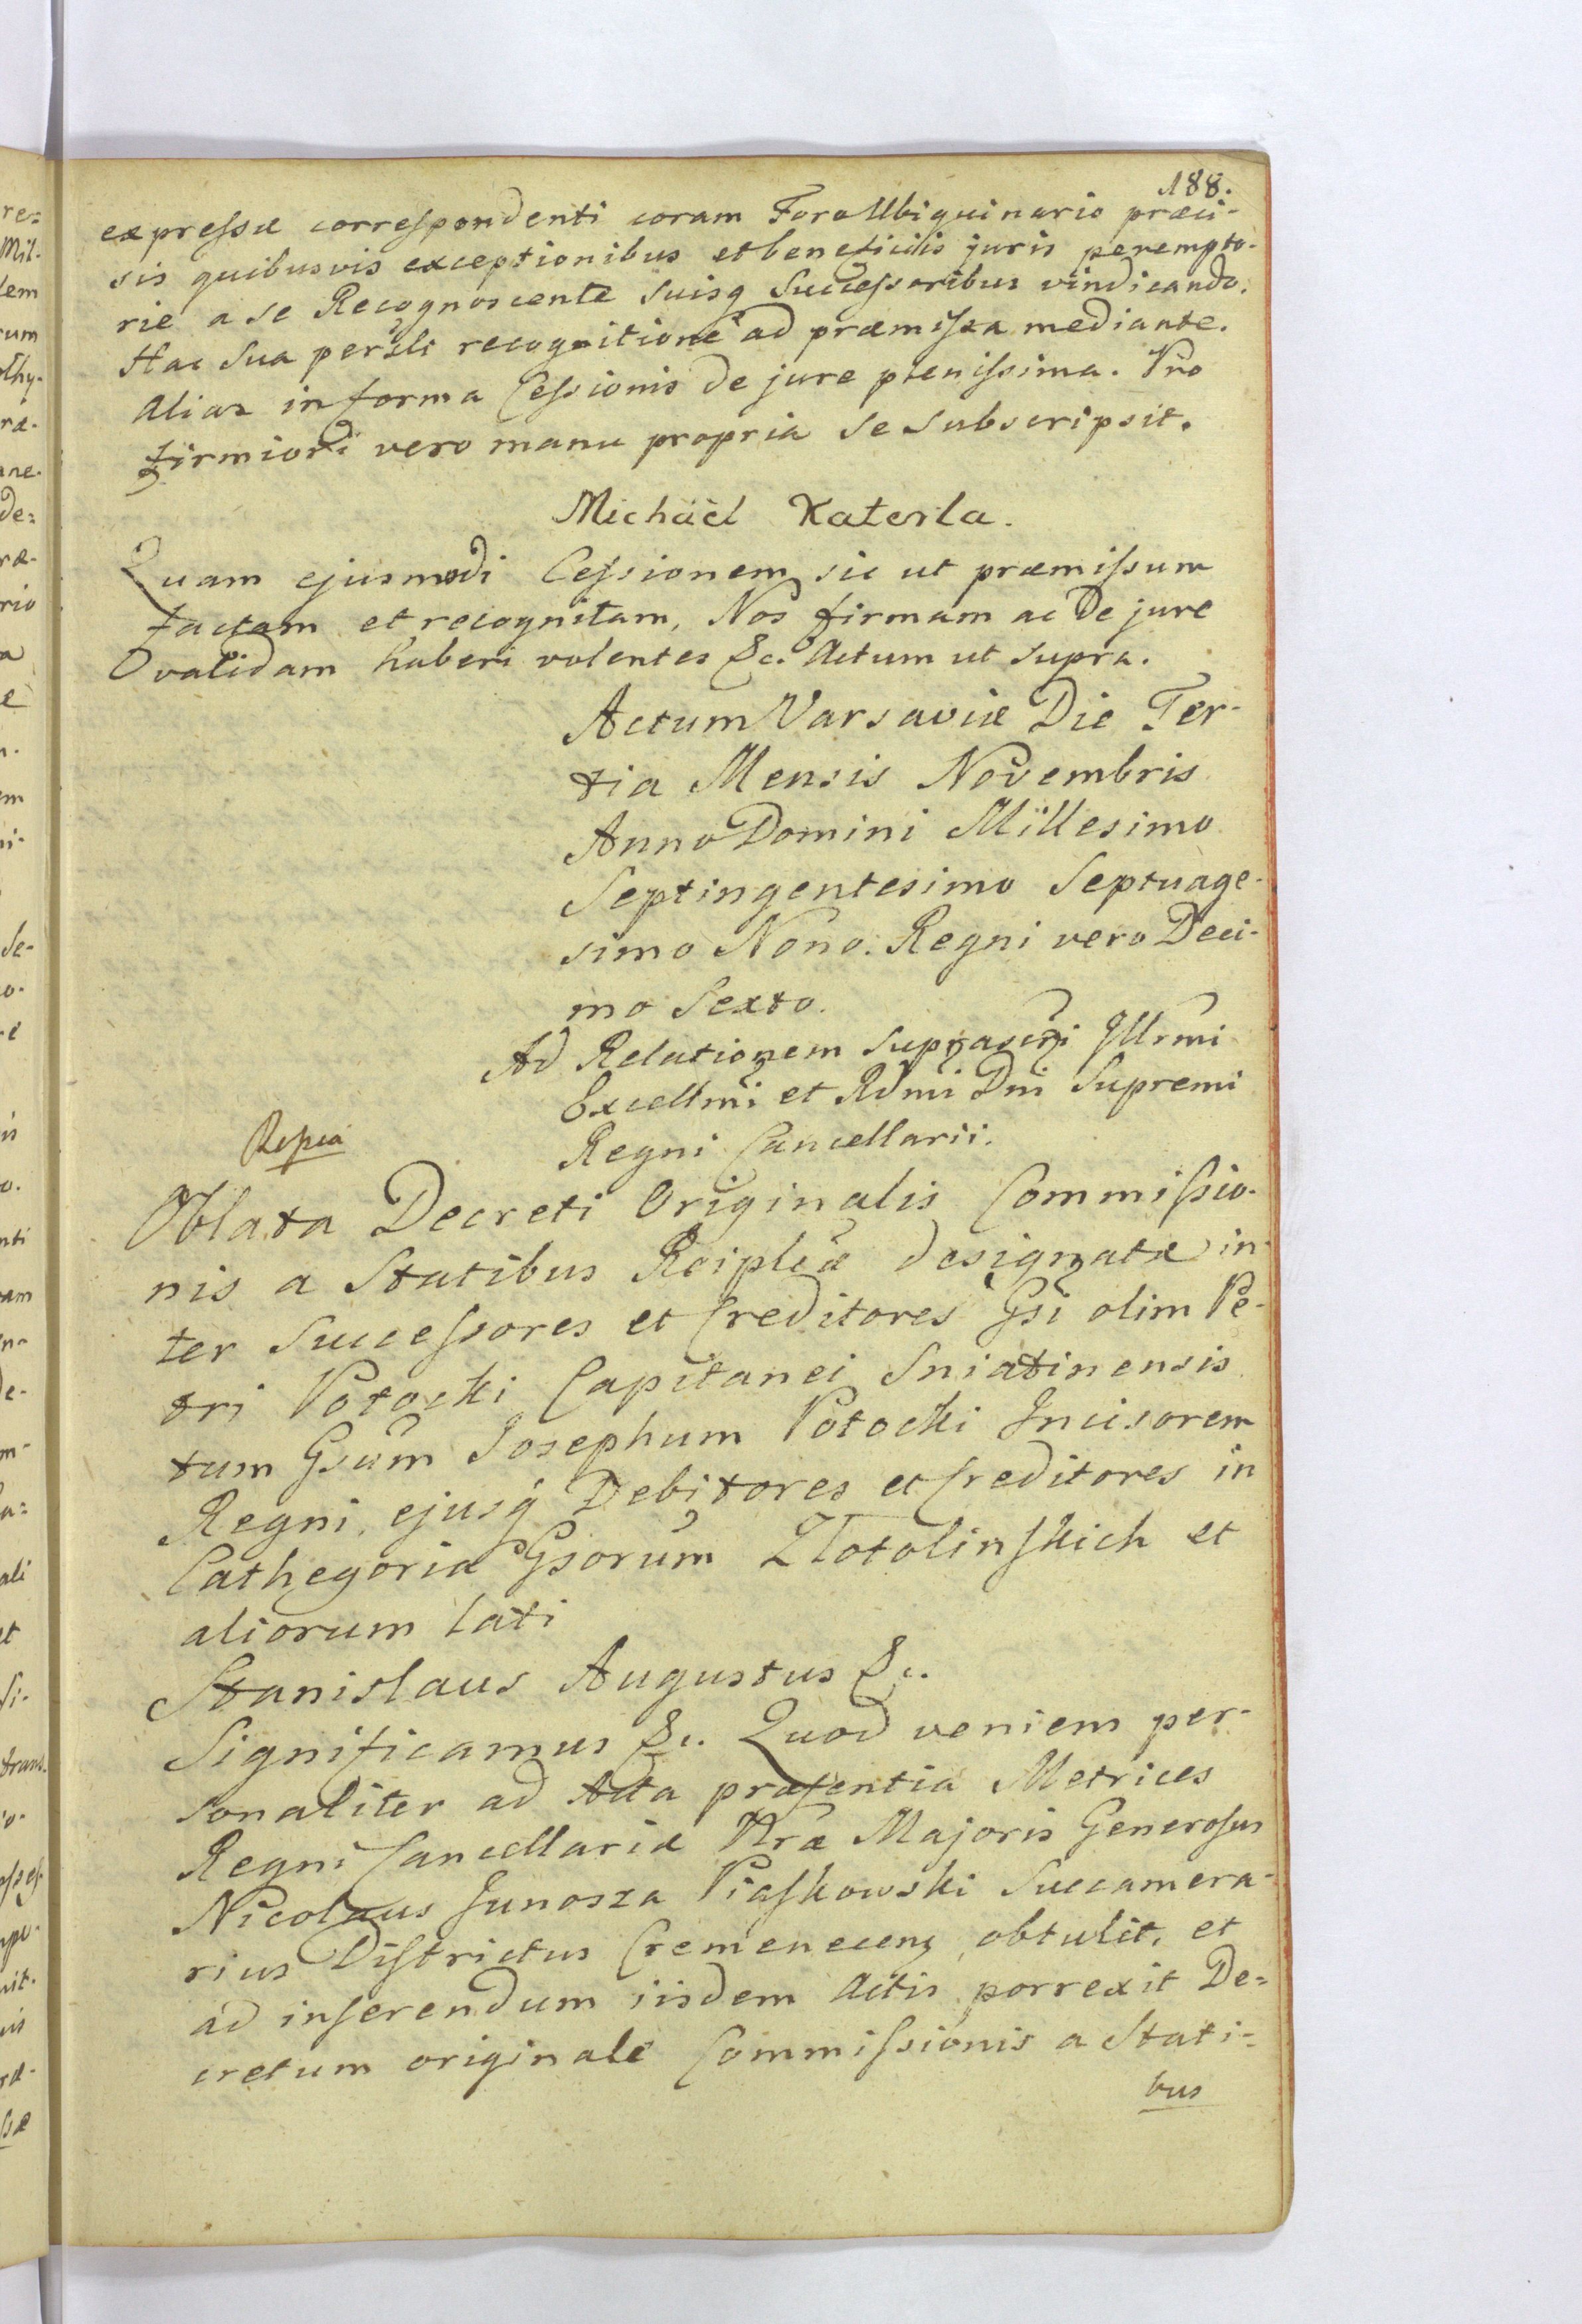 188.
expressæ correspondenti coram Foro Ubiquinario præci-
sis quibusvis exceptionibus et beneficiis juris perempto-
rie a se Recognoscente suisq Successoribus vindicando.
Hac sua persli recognitione ad præmissa mediante.
Alias in forma Cessionis de jure plenissima. Pro
firmiori vero manu propria se subscripsit.
Michäel Katerla.
Quam ejusmodi Cessionem sic ut præmissum
factam et recognitam, Nos firmam ac de jure
validam haberi volentes &c. Actum ut supra.
Actum Varsaviæ Die Ter-
tia Mensis Novembris
Anno Domini Millesimo
Septingentesimo Septuage-
simo Nono. Regni vero Deci-
mo Sexto.
Ad Relationem suprascri Illrmi
Excellmi et Rdmi Dni Supremi
Regni Cancellarii.
Oblata Decreti Originalis Commissio-
nis a Statibus Reiplcæ designatæ in-
ter Successores et Creditores Gsi olim Pe-
tri Potocki Capitanei Sniatinensis
tum Gsum Josephum Potocki Incisorem
Regni, ejusq Debitores et Creditores in
Cathegoria Gsorum Złotolinskich et
aliorum lati
Stanislaus Augustus &c.
Significamus &c. Quod veniens per-
sonaliter ad Acta præsentia Metrices
Regni Cancellariæ Nræ Majoris Generosus
Nicolaus Junosza Piaskowski Succamera-
rius Districtus Cremenecens obtulit, et
ad inserendum iisdem Actis porrexit De=
cretum originale Commissionis a Stati=
bus